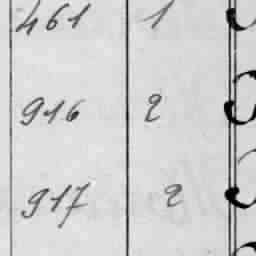 461 1
916 2
917 2